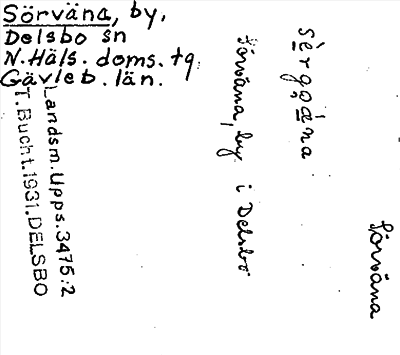 Sörväna, by,
Delsbo sn
N.Häls. doms. tg.
Gävleb. län.
Landsm.Upps.3475:2
T.Bucht.1931.DELSBO
Sörväna, by i Delsbo
Sörväna